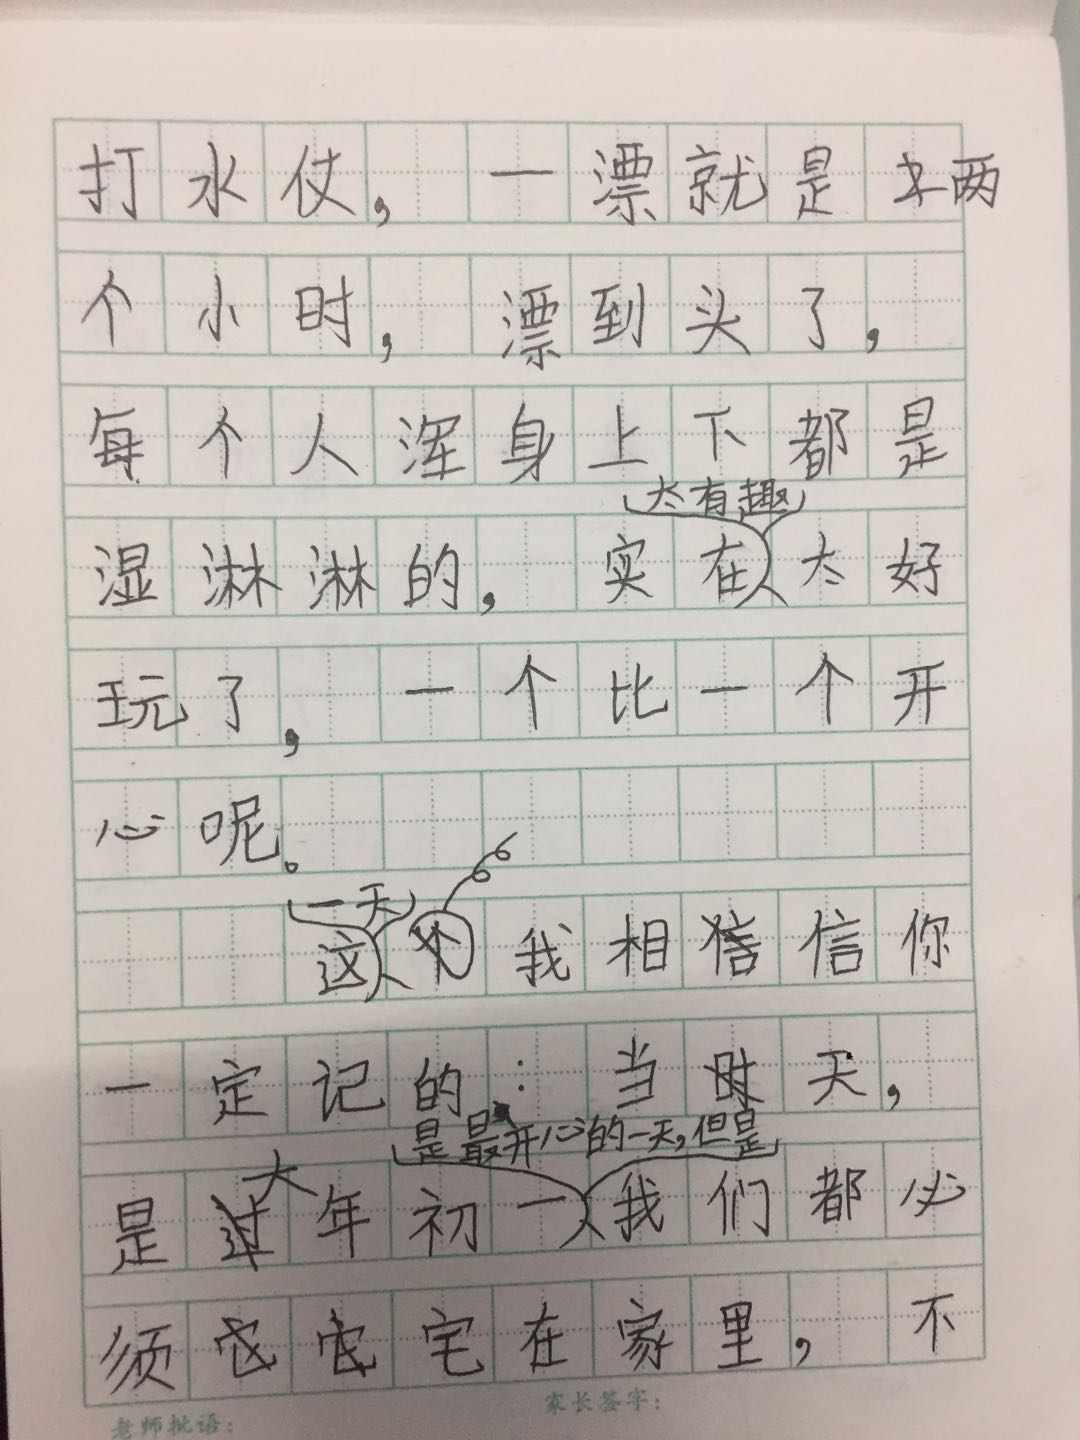 打水仗，一漂就是两
个小时，漂到头了，
每个人浑身上下都是
太有趣
湿淋淋的，实在太好
玩了，一个比一个开
心呢。
一天
这个我相信信你
一定记的：当时天，
是最开心的一天，但是
大
是过年初一我们都必
须宅在家里，不
老师批语：
家长签字：